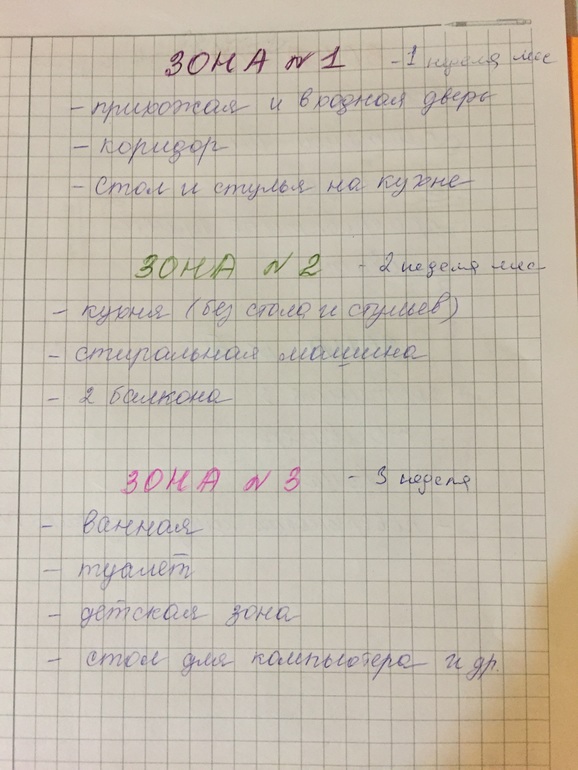 ЗОНА №1 - 1 неделя мес
- прихожая и входная дверь
- коридор
- стол и стулья на кухне
ЗОНА №2 - 2 неделя мес
- кухня (без стола и стульев)
- стиральная машина
- 2 балкона
ЗОНА №3 - 3 неделя
- ванная
- туалет
- детская зона
- стол для компьютера и др.